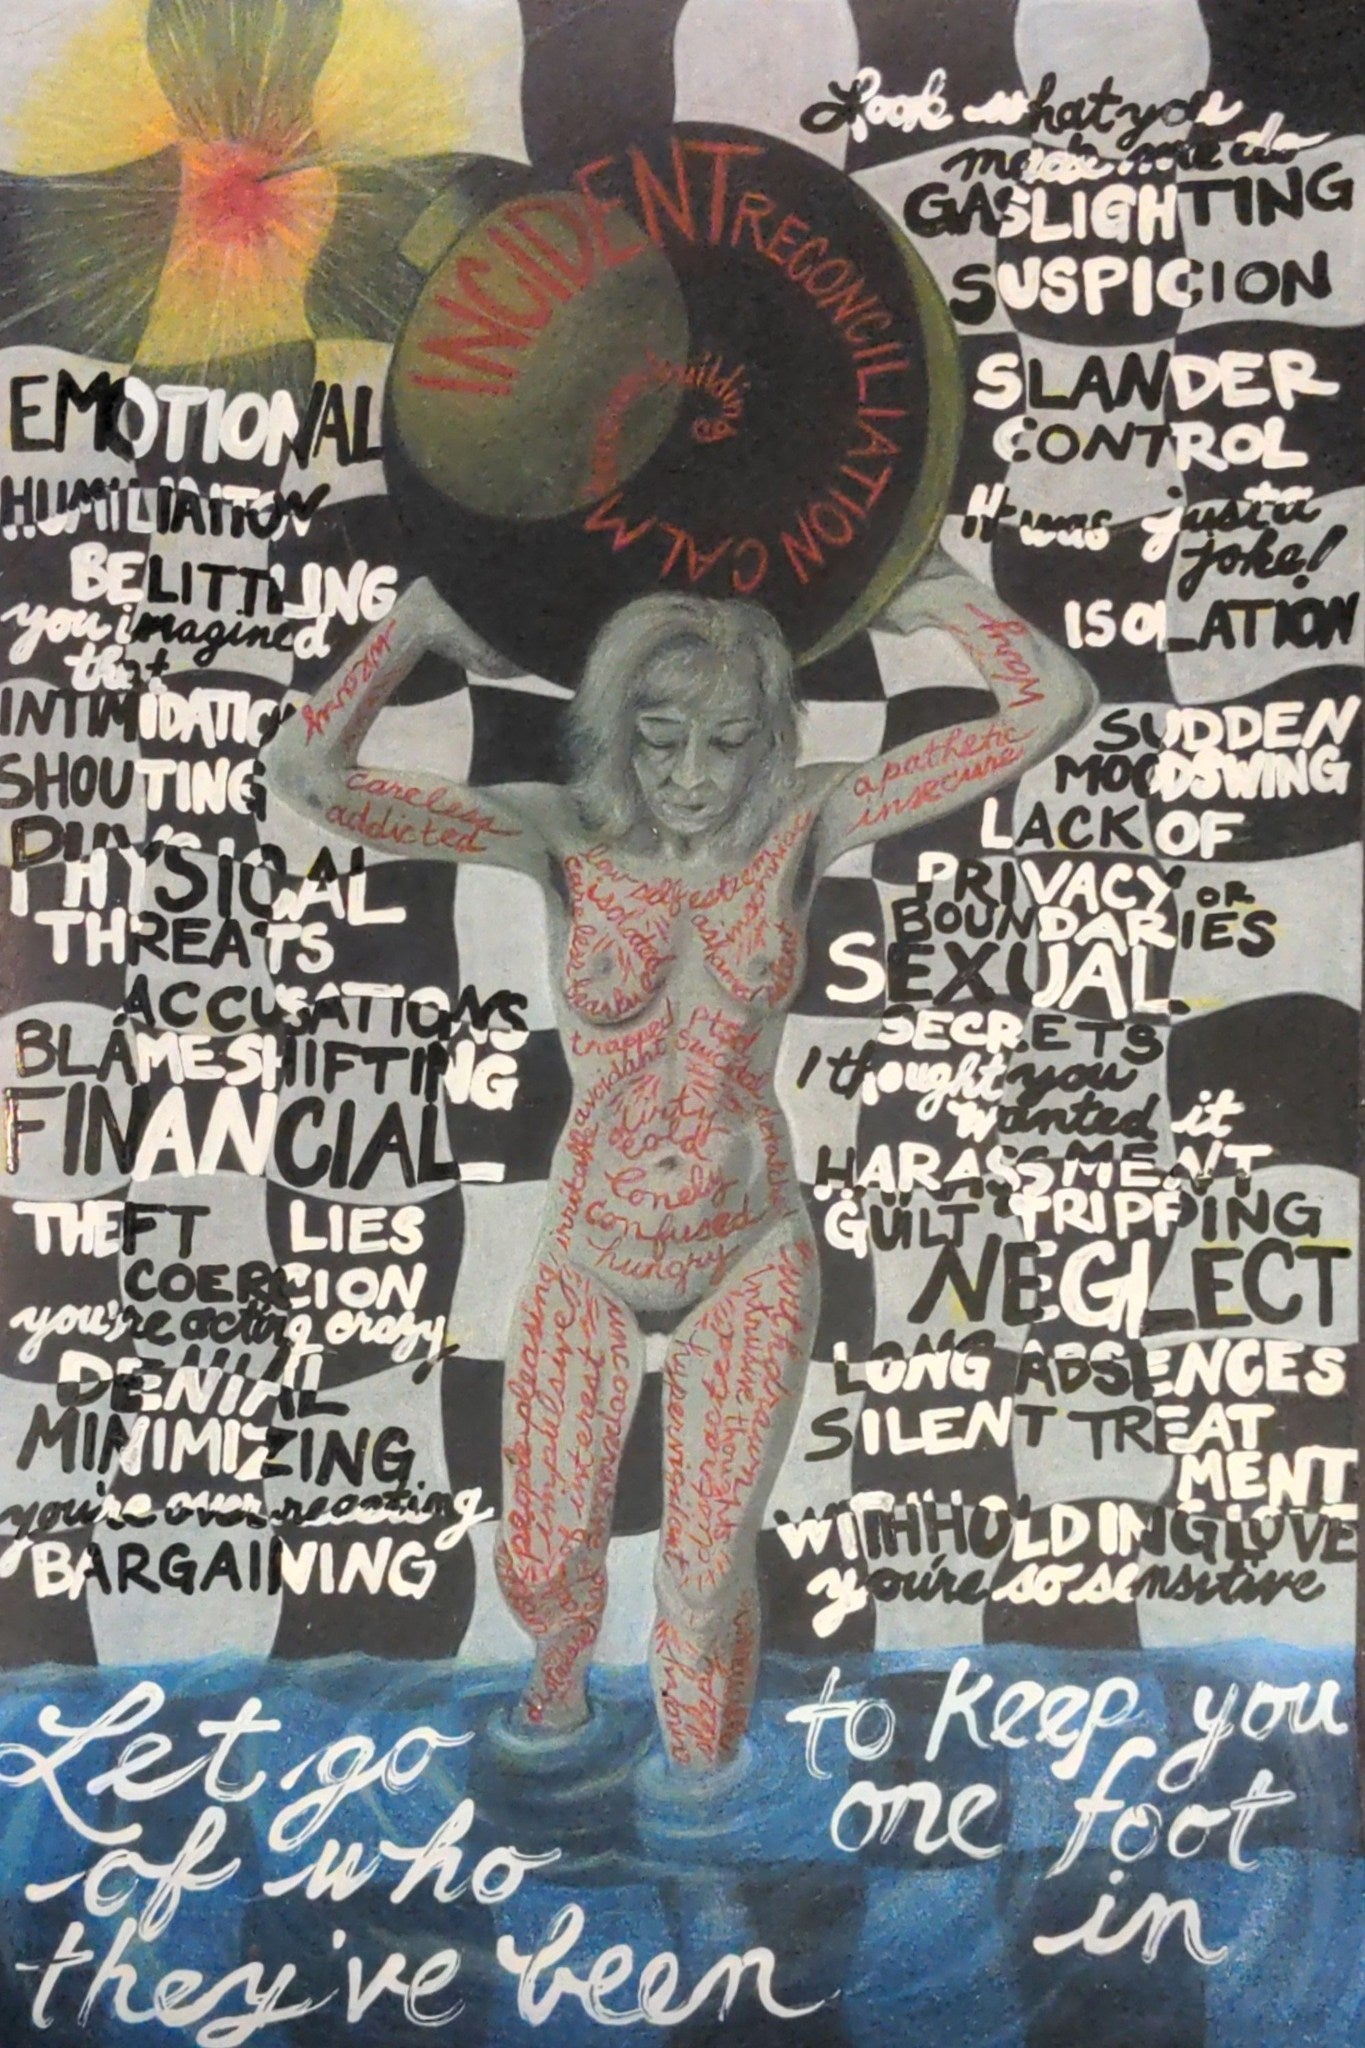 INCIDENT RECONCILIATION CALM
building
EMOTIONAL
HUMILIATION
BELITTLING
you imagined
that
INTIMIDATION
SHOUTING
PHYSICAL
THREATS
ACCUSATIONS
BLAMESHIFTING
FINANCIAL
THEFT LIES
COERCION
you're acting crazy
DENIAL
MINIMIZING
you're over reacting
BARGAINING
Look what you
made me do
GASLIGHTING
SUSPICION
SLANDER
CONTROL
It was just a
joke!
ISOLATION
SUDDEN
MOODSWING
LACK OF
PRIVACY OR
BOUNDARIES
SEXUAL
SECRETS
I thought you
wanted it
HARASSMENT
GUILT TRIPPING
NEGLECT
LONG ABSENCES
SILENT TREAT
MENT
WITHHOLDING LOVE
you're so sensitive
wary
careless
addicted
apathetic
insecure
low self esteem
isolated
ashamed
trapped
ptsd
avoidant
suicidal
irritable
dirty
cold
lonely
confused
hungry
people pleasing
impulsive
withdrawn
intrusive thoughts
hypervigilant
Let go
of who
they've been
to keep you
one foot
in